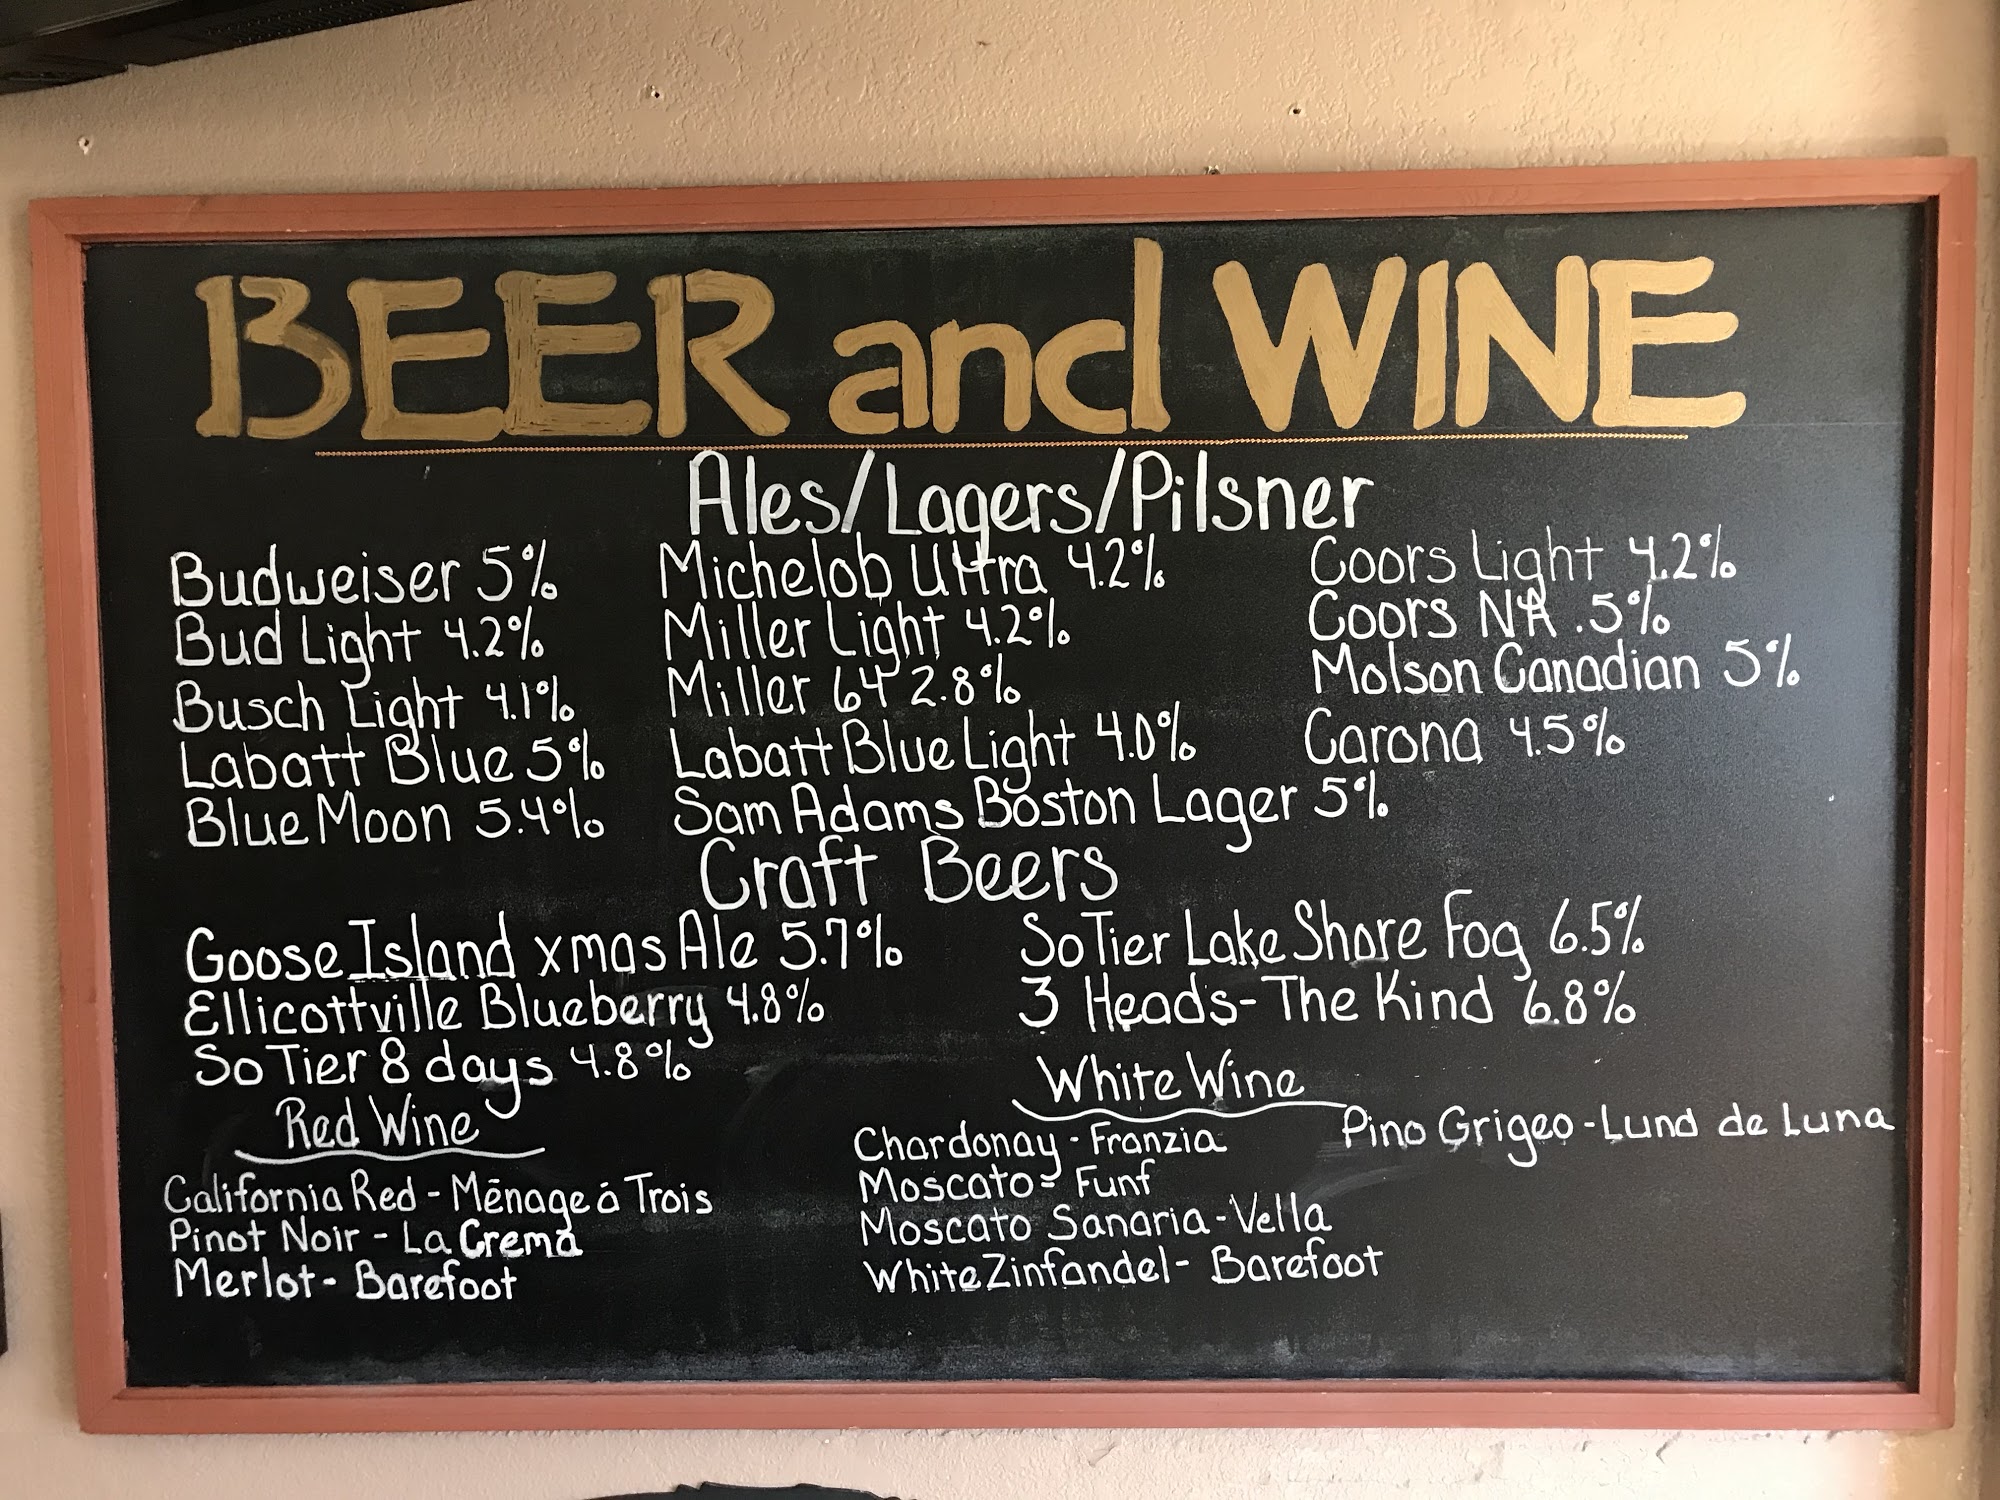 BEER and WINE
Ales/Lagers/Pilsner
Budweiser 5%
Bud Light 4.2%
Busch Light 4.1%
Labatt Blue 5%
Blue Moon 5.4%
Michelob Ultra 4.2%
Miller Light 4.2%
Miller 64 2.8%
Labatt Blue Light 4.0%
Sam Adams Boston Lager 5%
Coors Light 4.2%
Coors NA .5%
Molson Canadian 5%
Carona 4.5%
Craft Beers
Goose Island xmas Ale 5.7%
Ellicottville Blueberry 4.8%
So Tier 8 days 4.8%
So Tier Lake Shore Fog 6.5%
3 Heads- The Kind 6.8%
Red Wine
California Red - Mēnage á Trois
Pinot Noir - La Crema
Merlot- Barefoot
White Wine
Chardonay - Franzia
Moscato - Funf
Moscato Sanaria - Vella
White Zinfandel - Barefoot
Pino Grigeo - Lund de Luna